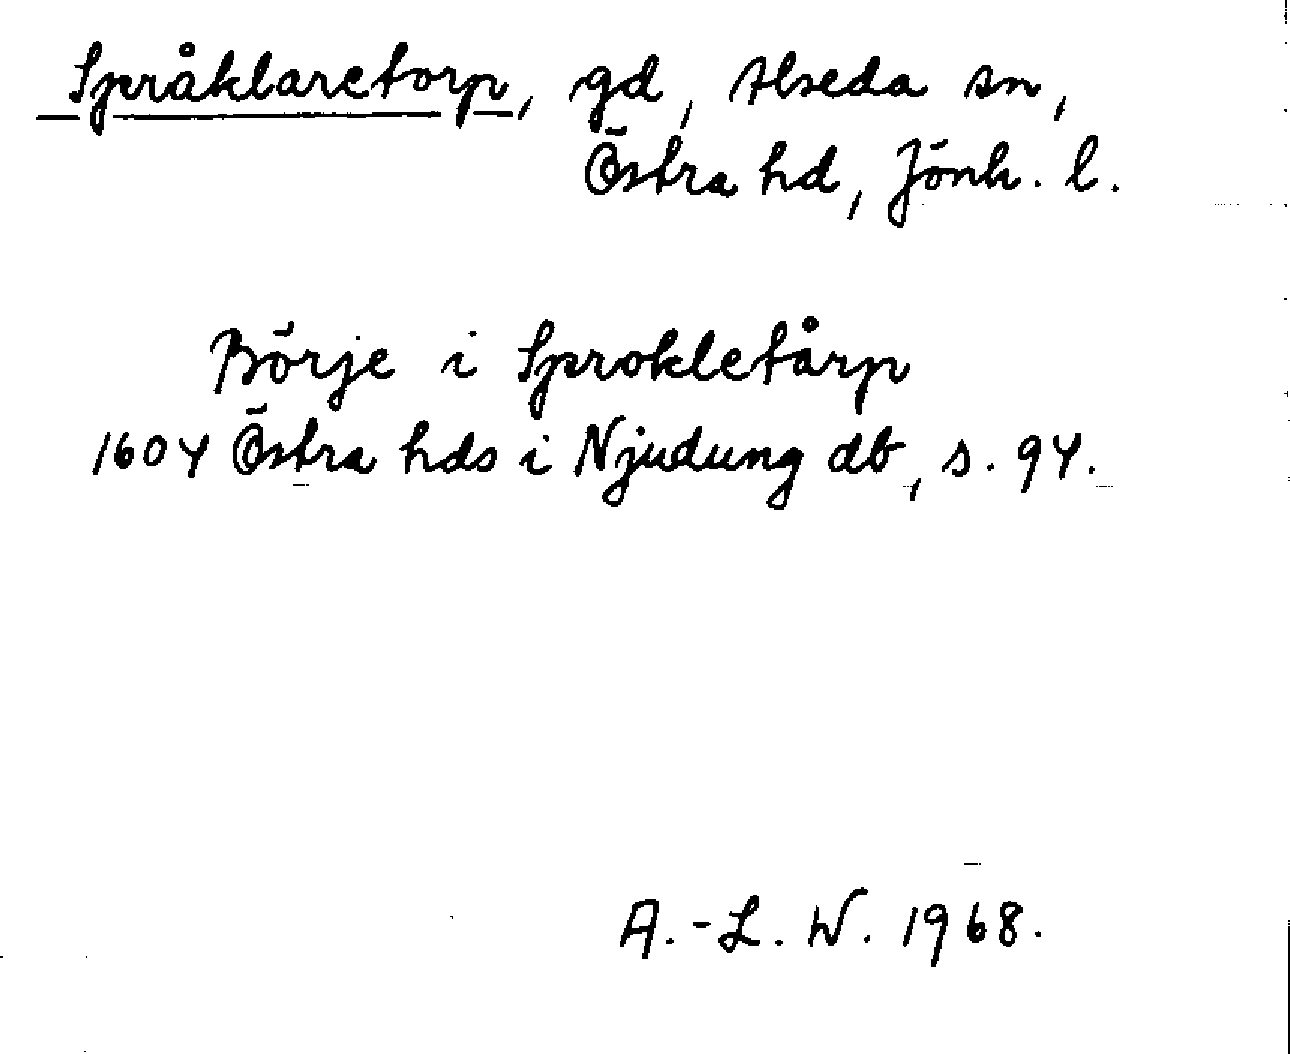 Språklaretorp, gd, Alseda sn,
Östra hd, Jönk. l.
Börje i Sprokletårp
1604 Östra hds i Njudung db, s. 94.
A.-L. W. 1968.